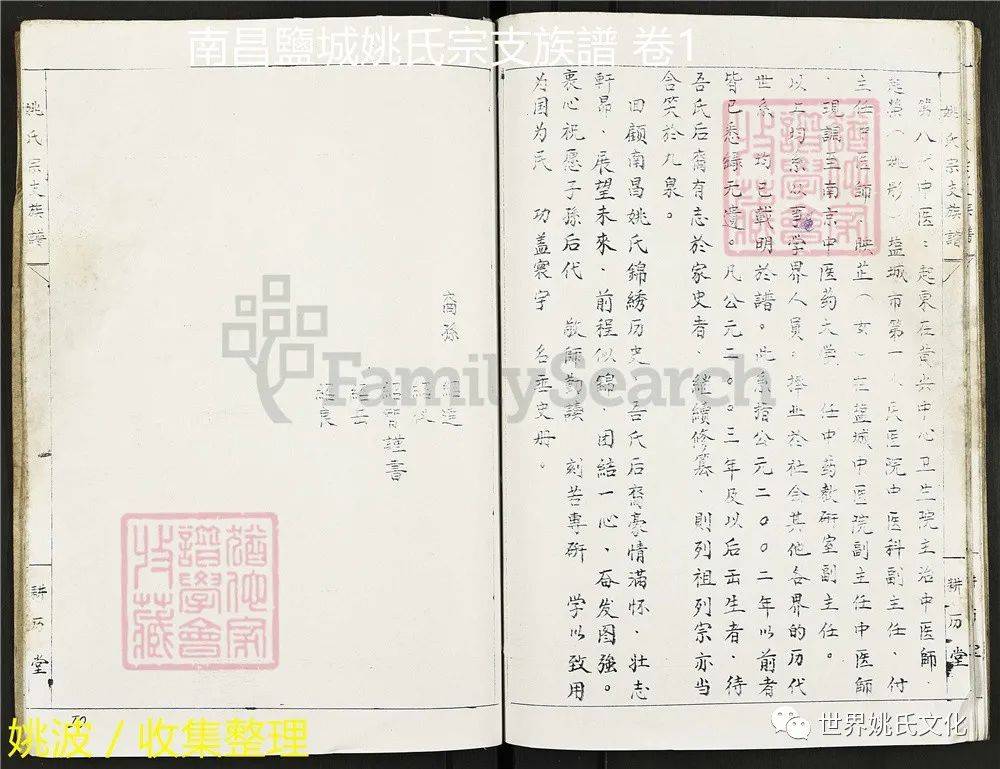 南昌鹽城姚氏宗支族譜 卷1
姚氏宗支族譜
耕历堂
第八代中医：起東在黄尖中心卫生院主治中医師.
起篥(姚彤)塩城市第一人民医院中医科副主任、付
主任中医師.映芷(女)在塩城中医院副主任中医師
.現調至南京中医药大学 任中药教研室副主任。
以上均系以事学界人員.擇业於社会其他各界的历代
世系 均已载明於譜。此系指公元二00二年以前者
皆已悉録元遗。凡公元二00三年及以后岳生者,待
吾氏后裔有志於家史者、継續修篡、則列祖列宗亦当
含笑於九泉。
回顾南昌姚氏錦绣历史、吾氏后裔豪情满怀、壮志
軒昂、展望未來、前程似錦、团结一心、奋发图強。
衷心祝愿子孫后代 敬師勤讀 刻苦専研 学以致用
为国为民 功盖寰宇 名垂史册。
裔孫
謹書
姚氏宗支族譜
耕历堂
FamilySearch
譜學會
收藏
姚波/收集整理
世界姚氏文化